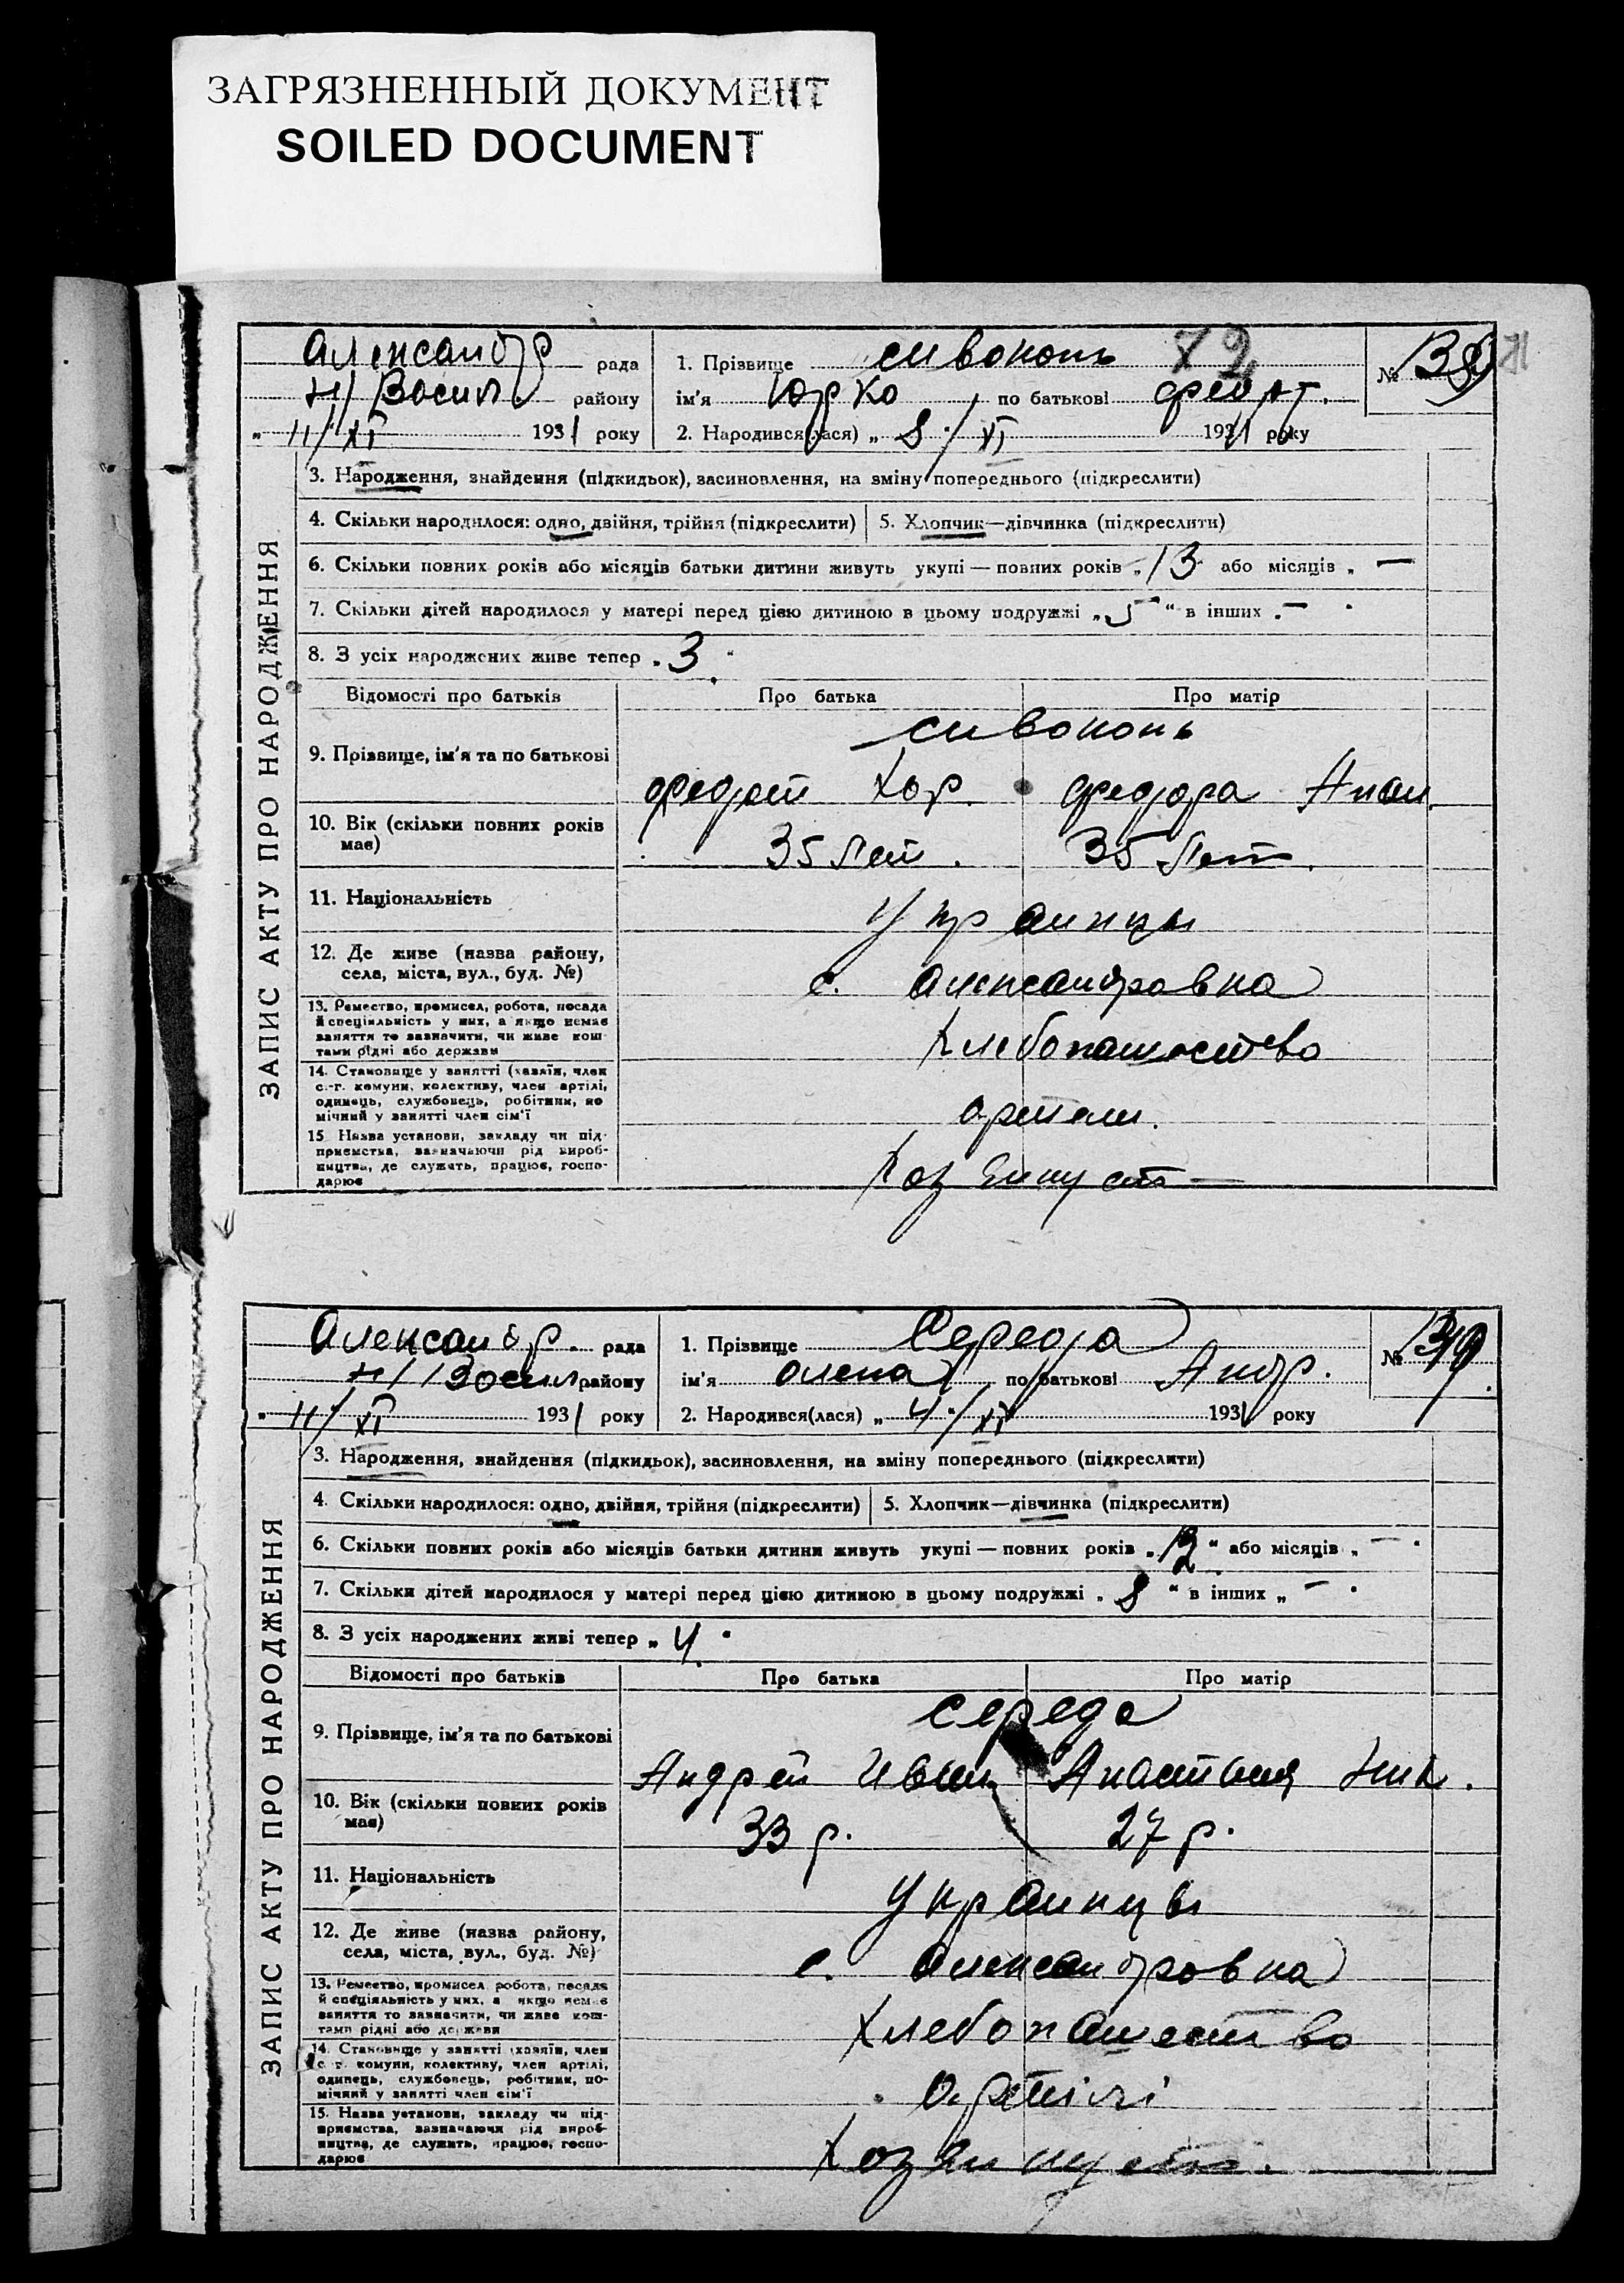 ЗАГРЯЗНЕННЫЙ ДОКУМЕНТ
SOILED DOCUMENT
72
Александр рада
Н/Васил району
11/XI 1931 року
1. Прізвище сивоконь
№ 139
ім'я Юрко по батькові федот.
2. Народився(лася) „ 8/XI 1931 року
ЗАПИС АКТУ ПРО НАРОДЖЕННЯ
3. Народження, знайдення (підкидьок), засиновлення, на зміну попереднього (підкреслити)
4. Скільки народилося: одно, двійня, трійня (підкреслити) 5. Хлопчик—дівчинка (підкреслити)
6. Скільки повних років або місяців батьки дитини живуть укупі — повних років „ 13 або місяців „ —
7. Скільки дітей народилося у матері перед цією дитиною в цьому подружжі „ 5 “ в інших „ —
8. З усіх народжених живе тепер „ 3 “
Відомості про батьків Про батька Про матір
9. Прізвище, ім'я та по батькові
сивоконь
федот Хар. федора Апан.
10. Вік (скільки повних років має)
35 лет. 35 лет.
11. Національність
украинцы
12. Де живе (назва району, села, міста, вул., буд. №)
с. Александровка
13. Ремество, промисел, робота, посада й спеціяльність у них, а якщо немає заняття то зазначити, чи живе коштами рідні або держави
хлебопашество
14. Становище у занятті (хазяїн, член с.-г. комуни, колективу, член артілі, одинець, службовець, робітник, помічний у занятті член сім'ї
артели.
15. Назва установи, закладу чи підприємства, зазначаючи рід виробництва, де служить, працює, господарює
Александр. рада
Н/Васил району
11/XI 1931 року
1. Прізвище Середа
№ 140
ім'я Олена по батькові Андр.
2. Народився(лася) „ 4/XI 1931 року
ЗАПИС АКТУ ПРО НАРОДЖЕННЯ
3. Народження, знайдення (підкидьок), засиновлення, на зміну попереднього (підкреслити)
4. Скільки народилося: одно, двійня, трійня (підкреслити) 5. Хлопчик—дівчинка (підкреслити)
6. Скільки повних років або місяців батьки дитини живуть укупі — повних років „ 12 “ або місяців „ —
7. Скільки дітей народилося у матері перед цією дитиною в цьому подружжі „ 8 “ в інших „ —
8. З усіх народжених живі тепер „ 4 “
Відомості про батьків Про батька Про матір
9. Прізвище, ім'я та по батькові
Середа
Андрей Иван. Анастасия Ник.
10. Вік (скільки повних років має)
33 р. 27 р.
11. Національність
украинцы
12. Де живе (назва району, села, міста, вул., буд. №)
с. Александровка
13. Ремество, промисел, робота, посада й спеціяльність у них, а якщо немає заняття то зазначити, чи живе коштами рідні або держави
Хлебопашество
14. Становище у занятті (хазяїн, член с.-г. комуни, колективу, член артілі, одинець, службовець, робітник, помічний у занятті член сім'ї
Артілі
15. Назва установи, закладу чи підприємства, зазначаючи рід виробництва, де служить, працює, господарює